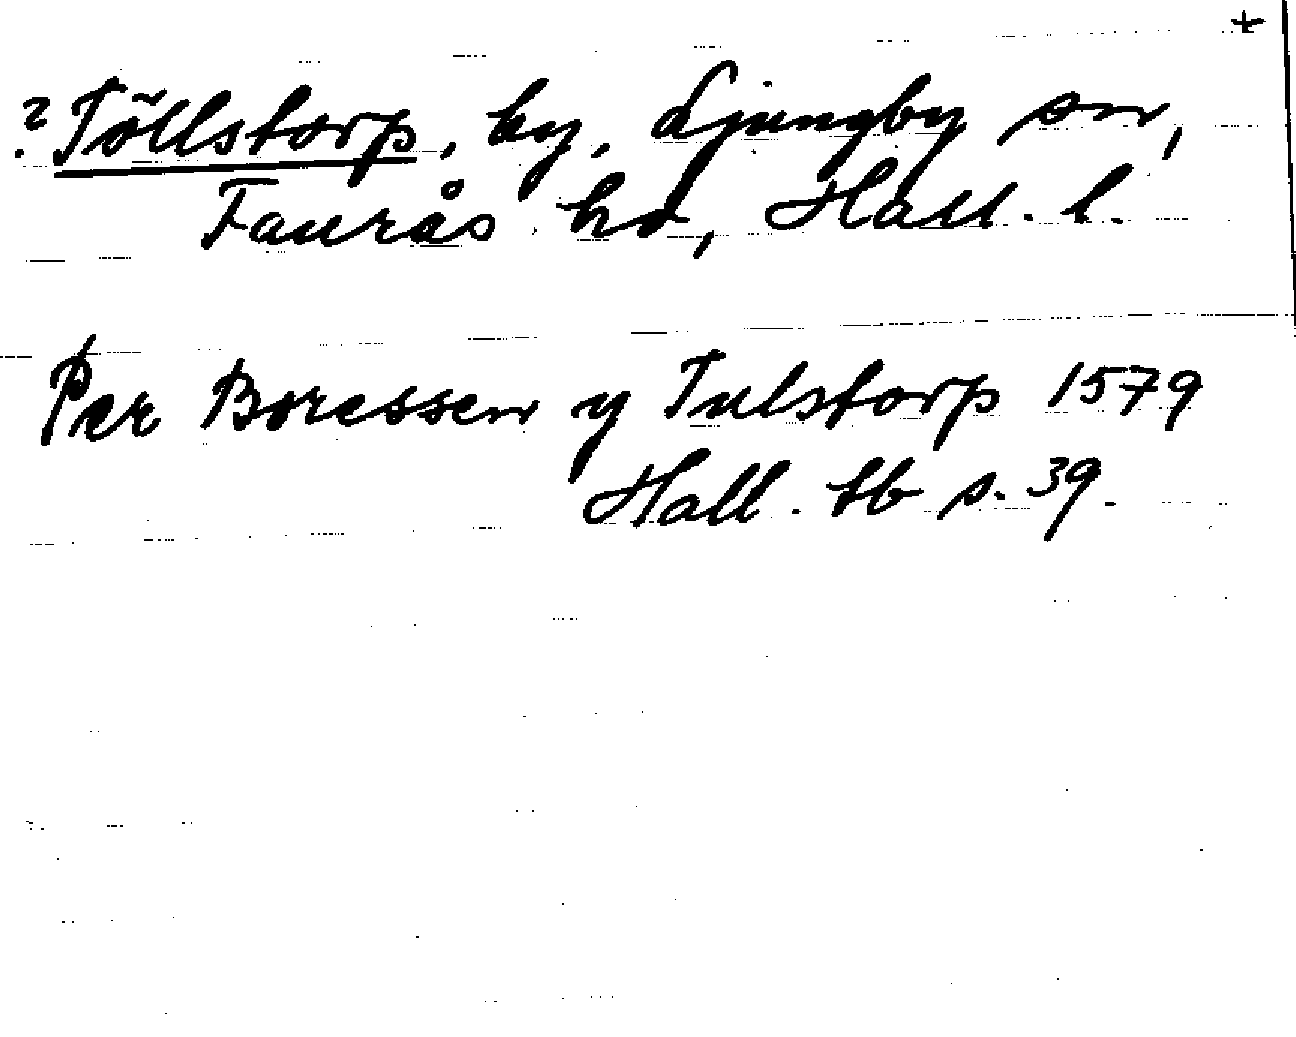 +
? Töllstorp, by, Ljungby sn,
Faurås hd, Hall. l.
Per Boressen y Tulstorp 1579
Hall. tb s. 39.